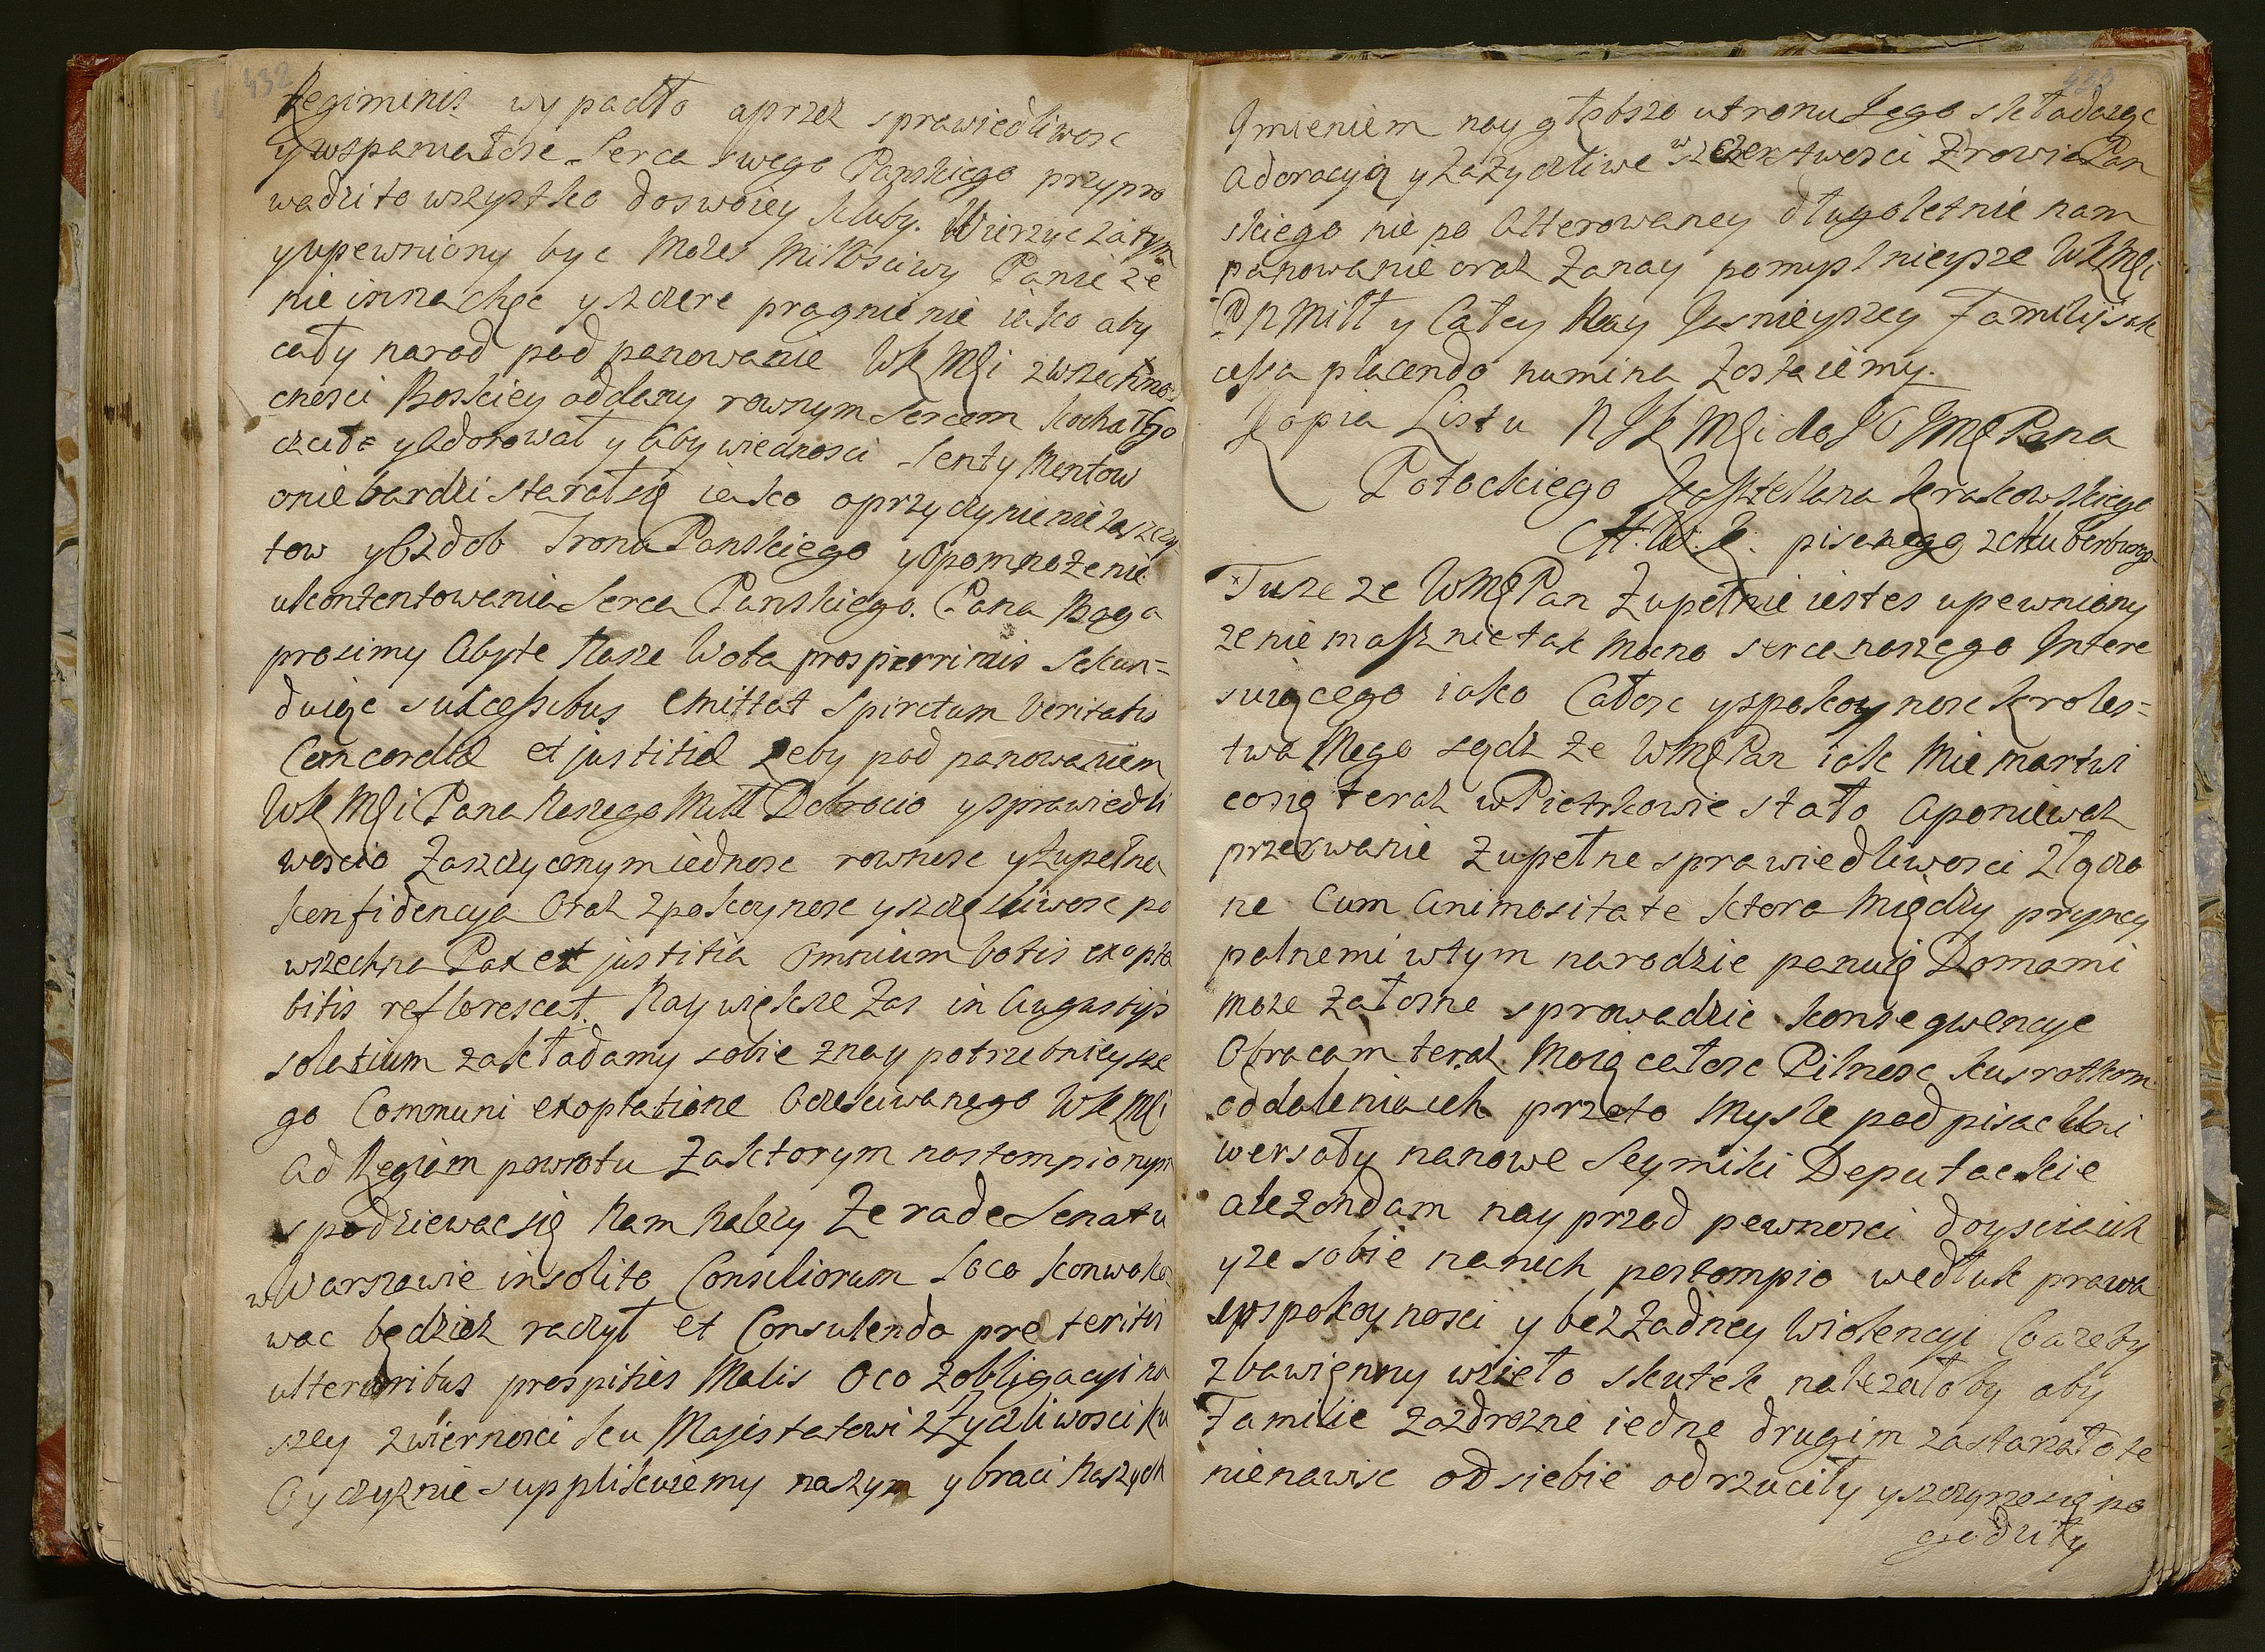 432
Regiminis wypadło aprzez sprawiedliwosc
y wspaniałosc Serca swego Panskiego przypro
wadzito wszystko doswoiey kluby. Wierzyc zatym
yupewniony byc Mozes Miłosciwy Panie ze
nie inna chęc y szczere pragnienie iako aby
cały narod pod panowanie WKMsci zwszechmo-
cnosci Boskiey oddany rownym Sercem kochał go
czcił y Adorował y Aby wiednosci Senty Mentow
oniebardzi starał się iako oprzyczynienie zaszczy
tow yOzdob Tronu Panskiego yopomnozenie
ukontentowania Serca Panskiego. Pana Boga
prosimy Abyte Nasze Wota prosperrimis Sekun=
duiąc sukcessibus emittat Spiritum Veritatis
Concordiæ et justitiæ zeby pod panowaniem
WKMsci Pana Naszego Miłł Dobrocio ysprawiedli
woscio Zaszczyconym iednosc rownosc yzupełna
konfidencya Oraz zpokoynosc yszczęsliwosc po
wszechna Pax et justitia Omnium votis exopta
bitis reflorescat. Naywiększe Zas in Augustijs
solatium zakładamy sobie znaypotrzebnieysze
go Communi exoptatione Oczekiwanego WKMsci
Ad Regiam powrotu Zaktorym nastompionym
spodziewac się Nam Nalezy Ze rade Senatu
wWarszawie insolito Consiliorum Loco konwoko
wac będziesz raczył et Consulendo preteritis
ulterioribus prospities Malis Oco Zobligacyi na
szey zwiernosci ku Majestatowi zZyczliwosci ku
Oyczyznie supplikuiemy naszym ybraci Naszych
433
Imieniem nay głębsze utronu Jego składaiąc
adoracyą y Zazyczliwe w szczerstwosci Zrowie Pan
skiego nie po Alterowaney długoletnie nam
panowanie oraz Zanay pomysl nieysze WKMsci
PNMiłł y Całey Nay Jasnieyszey Familij suk
cessa placendo numina Zostaiemy.
Kopia Listu NJKMsci do JOJMę Pana
Potockiego Kasztellana Krakowskiego
H.W.K. pisanego zHuberburga
Tusze ze WMęPan Zupełnie iestes upewniony
ze nie masz nic tak Mocno serce naszego Intere
suiącego iako Całosc yspokoynosc kroles=
twa Mego sądz ze WMęPan iak Mie martwi
cosię teraz wPiotrkowie stało Aponiewaz
przerwanie Zupełne sprawiedliwosci złączo
ne Cum Animositate ktora Między pryncy
palnemi wtym narodzie panuię Domami
moze załosne sprowadzic konsegwencye
Obracam teraz Moię całosc Pilnosc kusrotkom
oddaleniaich przeto Mysle podpisac Uni
wersały nanowe Seymiki Deputackie
alezondam nayprzod pewnosci doyscia ich
yze sobie nanich postompio wedłuk prawa
wspokoynosci y bez Zadney Wiolencyi Coazeby
zbawienny wzieło skutek nalezałoby aby
Familie Zazdrozne iedne drugim zastarzałose
nienawisc od siebie odrzuciły yszczyrze się po
godziły